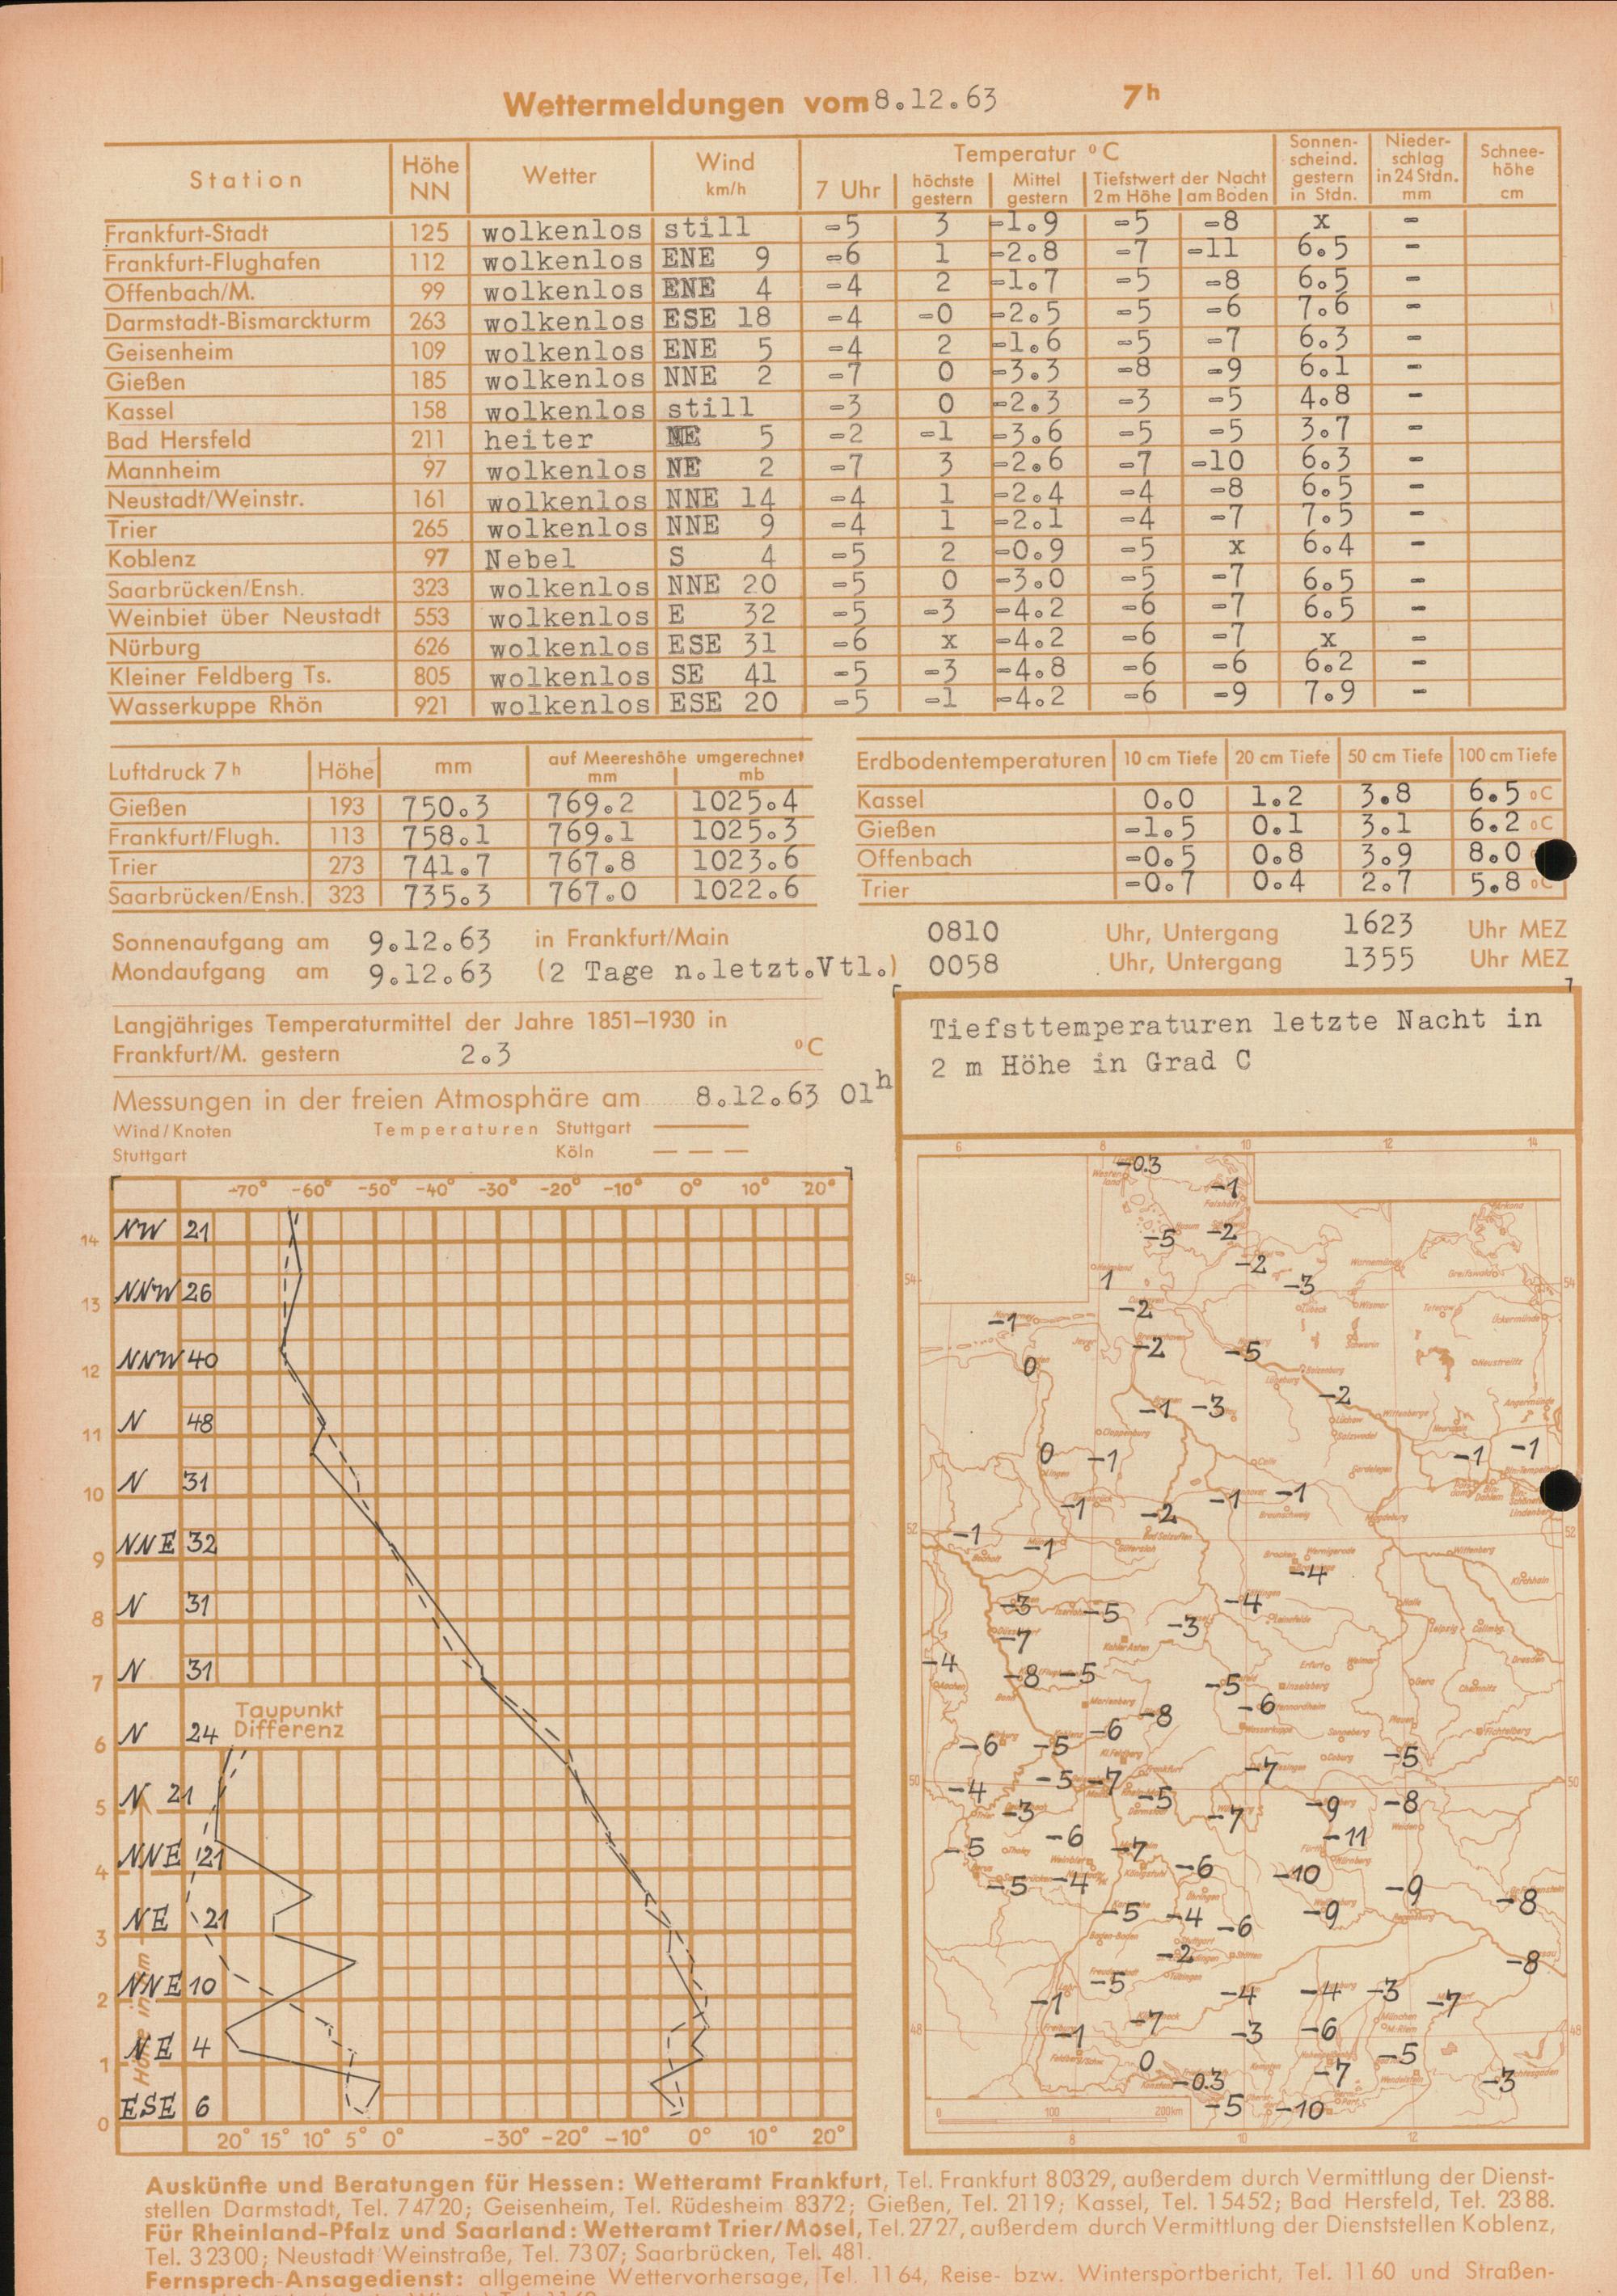 Wettermeldungen vom 8.12.63 7 h
Station Höhe NN Wetter Wind km/h Temperatur °C Sonnen-scheind. gestern in Stdn. Nieder-schlag in 24 Stdn. mm Schnee-höhe cm
7 Uhr höchste gestern Mittel gestern Tiefstwert der Nacht 2 m Höhe am Boden
Frankfurt-Stadt 125 wolkenlos still -5 3 -1.9 -5 -8 x -
Frankfurt-Flughafen 112 wolkenlos ENE 9 -6 1 -2.8 -7 -11 6.5 -
Offenbach/M. 99 wolkenlos ENE 4 -4 2 -1.7 -5 -8 6.5 -
Darmstadt-Bismarckturm 263 wolkenlos ESE 18 -4 -0 -2.5 -5 -6 7.6 -
Geisenheim 109 wolkenlos ENE 5 -4 2 -1.6 -5 -7 6.3 -
Gießen 185 wolkenlos NNE 2 -7 0 -3.3 -8 -9 6.1 -
Kassel 158 wolkenlos still -3 0 -2.3 -3 -5 4.8 -
Bad Hersfeld 211 heiter NE 5 -2 -1 -3.6 -5 -5 3.7 -
Mannheim 97 wolkenlos NE 2 -7 3 -2.6 -7 -10 6.3 -
Neustadt/Weinstr. 161 wolkenlos NNE 14 -4 1 -2.4 -4 -8 6.5 -
Trier 265 wolkenlos NNE 9 -4 1 -2.1 -4 -7 7.5 -
Koblenz 97 Nebel S 4 -5 2 -0.9 -5 x 6.4 -
Saarbrücken/Ensh. 323 wolkenlos NNE 20 -5 0 -3.0 -5 -7 6.5 -
Weinbiet über Neustadt 553 wolkenlos E 32 -5 -3 -4.2 -6 -7 6.5 -
Nürburg 626 wolkenlos ESE 31 -6 x -4.2 -6 -7 x -
Kleiner Feldberg Ts. 805 wolkenlos SE 41 -5 -3 -4.8 -6 -6 6.2 -
Wasserkuppe Rhön 921 wolkenlos ESE 20 -5 -1 -4.2 -6 -9 7.9 -
Luftdruck 7 h Höhe mm auf Meereshöhe umgerechnet mm mb
Gießen 193 750.3 769.2 1025.4
Frankfurt/Flugh. 113 758.1 769.1 1025.3
Trier 273 741.7 767.8 1023.6
Saarbrücken/Ensh. 323 735.3 767.0 1022.6
Erdbodentemperaturen 10 cm Tiefe 20 cm Tiefe 50 cm Tiefe 100 cm Tiefe
Kassel 0.0 1.2 3.8 6.5 °C
Gießen -1.5 0.1 3.1 6.2 °C
Offenbach -0.5 0.8 3.9 8.0
Trier -0.7 0.4 2.7 5.8 °C
Sonnenaufgang am 9.12.63 in Frankfurt/Main 0810 Uhr, Untergang 1623 Uhr MEZ
Mondaufgang am 9.12.63 (2 Tage n.letzt.Vtl.) 0058 Uhr, Untergang 1355 Uhr MEZ
Langjähriges Temperaturmittel der Jahre 1851–1930 in
Frankfurt/M. gestern 2.3 °C
Messungen in der freien Atmosphäre am 8.12.63 01h
Wind/Knoten Temperaturen Stuttgart
Stuttgart Köln
-70° -60° -50° -40° -30° -20° -10° 0° 10° 20°
NW 21
14
NNW 26
13
NNW 40
12
N 48
11
N 31
10
NNE 32
9
N 31
8
N 31
7
Taupunkt
N 24 Differenz
6
N 21
5
NNE 21
4
NE 21
3
NNE 10
2
NE 4
1
ESE 6
0
Höhe in km
20° 15° 10° 5° 0° -30° -20° -10° 0° 10° 20°
Tiefsttemperaturen letzte Nacht in
2 m Höhe in Grad C
6 8 10 12 14
-0.3
-1
-5 -2
-2
54 1 -3 54
-2
-1
-2 -5
0
-2
-1 -3
0 -1 -1 -1
-1 -2 -1 -1
52 -1 -1 52
-4
-3 -5 -3 -4
-7
-4 -8 -5 -5
-6
-6 -5 -6 -8 -5
50 -4 -5 -7 -7 50
-3 -5 -7 -9 -8
-5 -6 -7 -11
-5 -4 -6 -10 -9 -8
-5 -4 -6 -9
-2 -8
-5
-1 -4 -4 -3 -7
48 -1 -7 -3 -6 48
0 -7 -5
-0.3 -3
-5 -10
0 100 200km
8 10 12
Auskünfte und Beratungen für Hessen: Wetteramt Frankfurt, Tel. Frankfurt 80329, außerdem durch Vermittlung der Dienst-
stellen Darmstadt, Tel. 74720; Geisenheim, Tel. Rüdesheim 8372; Gießen, Tel. 2119; Kassel, Tel. 15452; Bad Hersfeld, Tel. 2388.
Für Rheinland-Pfalz und Saarland: Wetteramt Trier/Mosel, Tel. 2727, außerdem durch Vermittlung der Dienststellen Koblenz,
Tel. 32300; Neustadt Weinstraße, Tel. 7307; Saarbrücken, Tel. 481.
Fernsprech-Ansagedienst: allgemeine Wettervorhersage, Tel. 1164, Reise- bzw. Wintersportbericht, Tel. 1160 und Straßen-